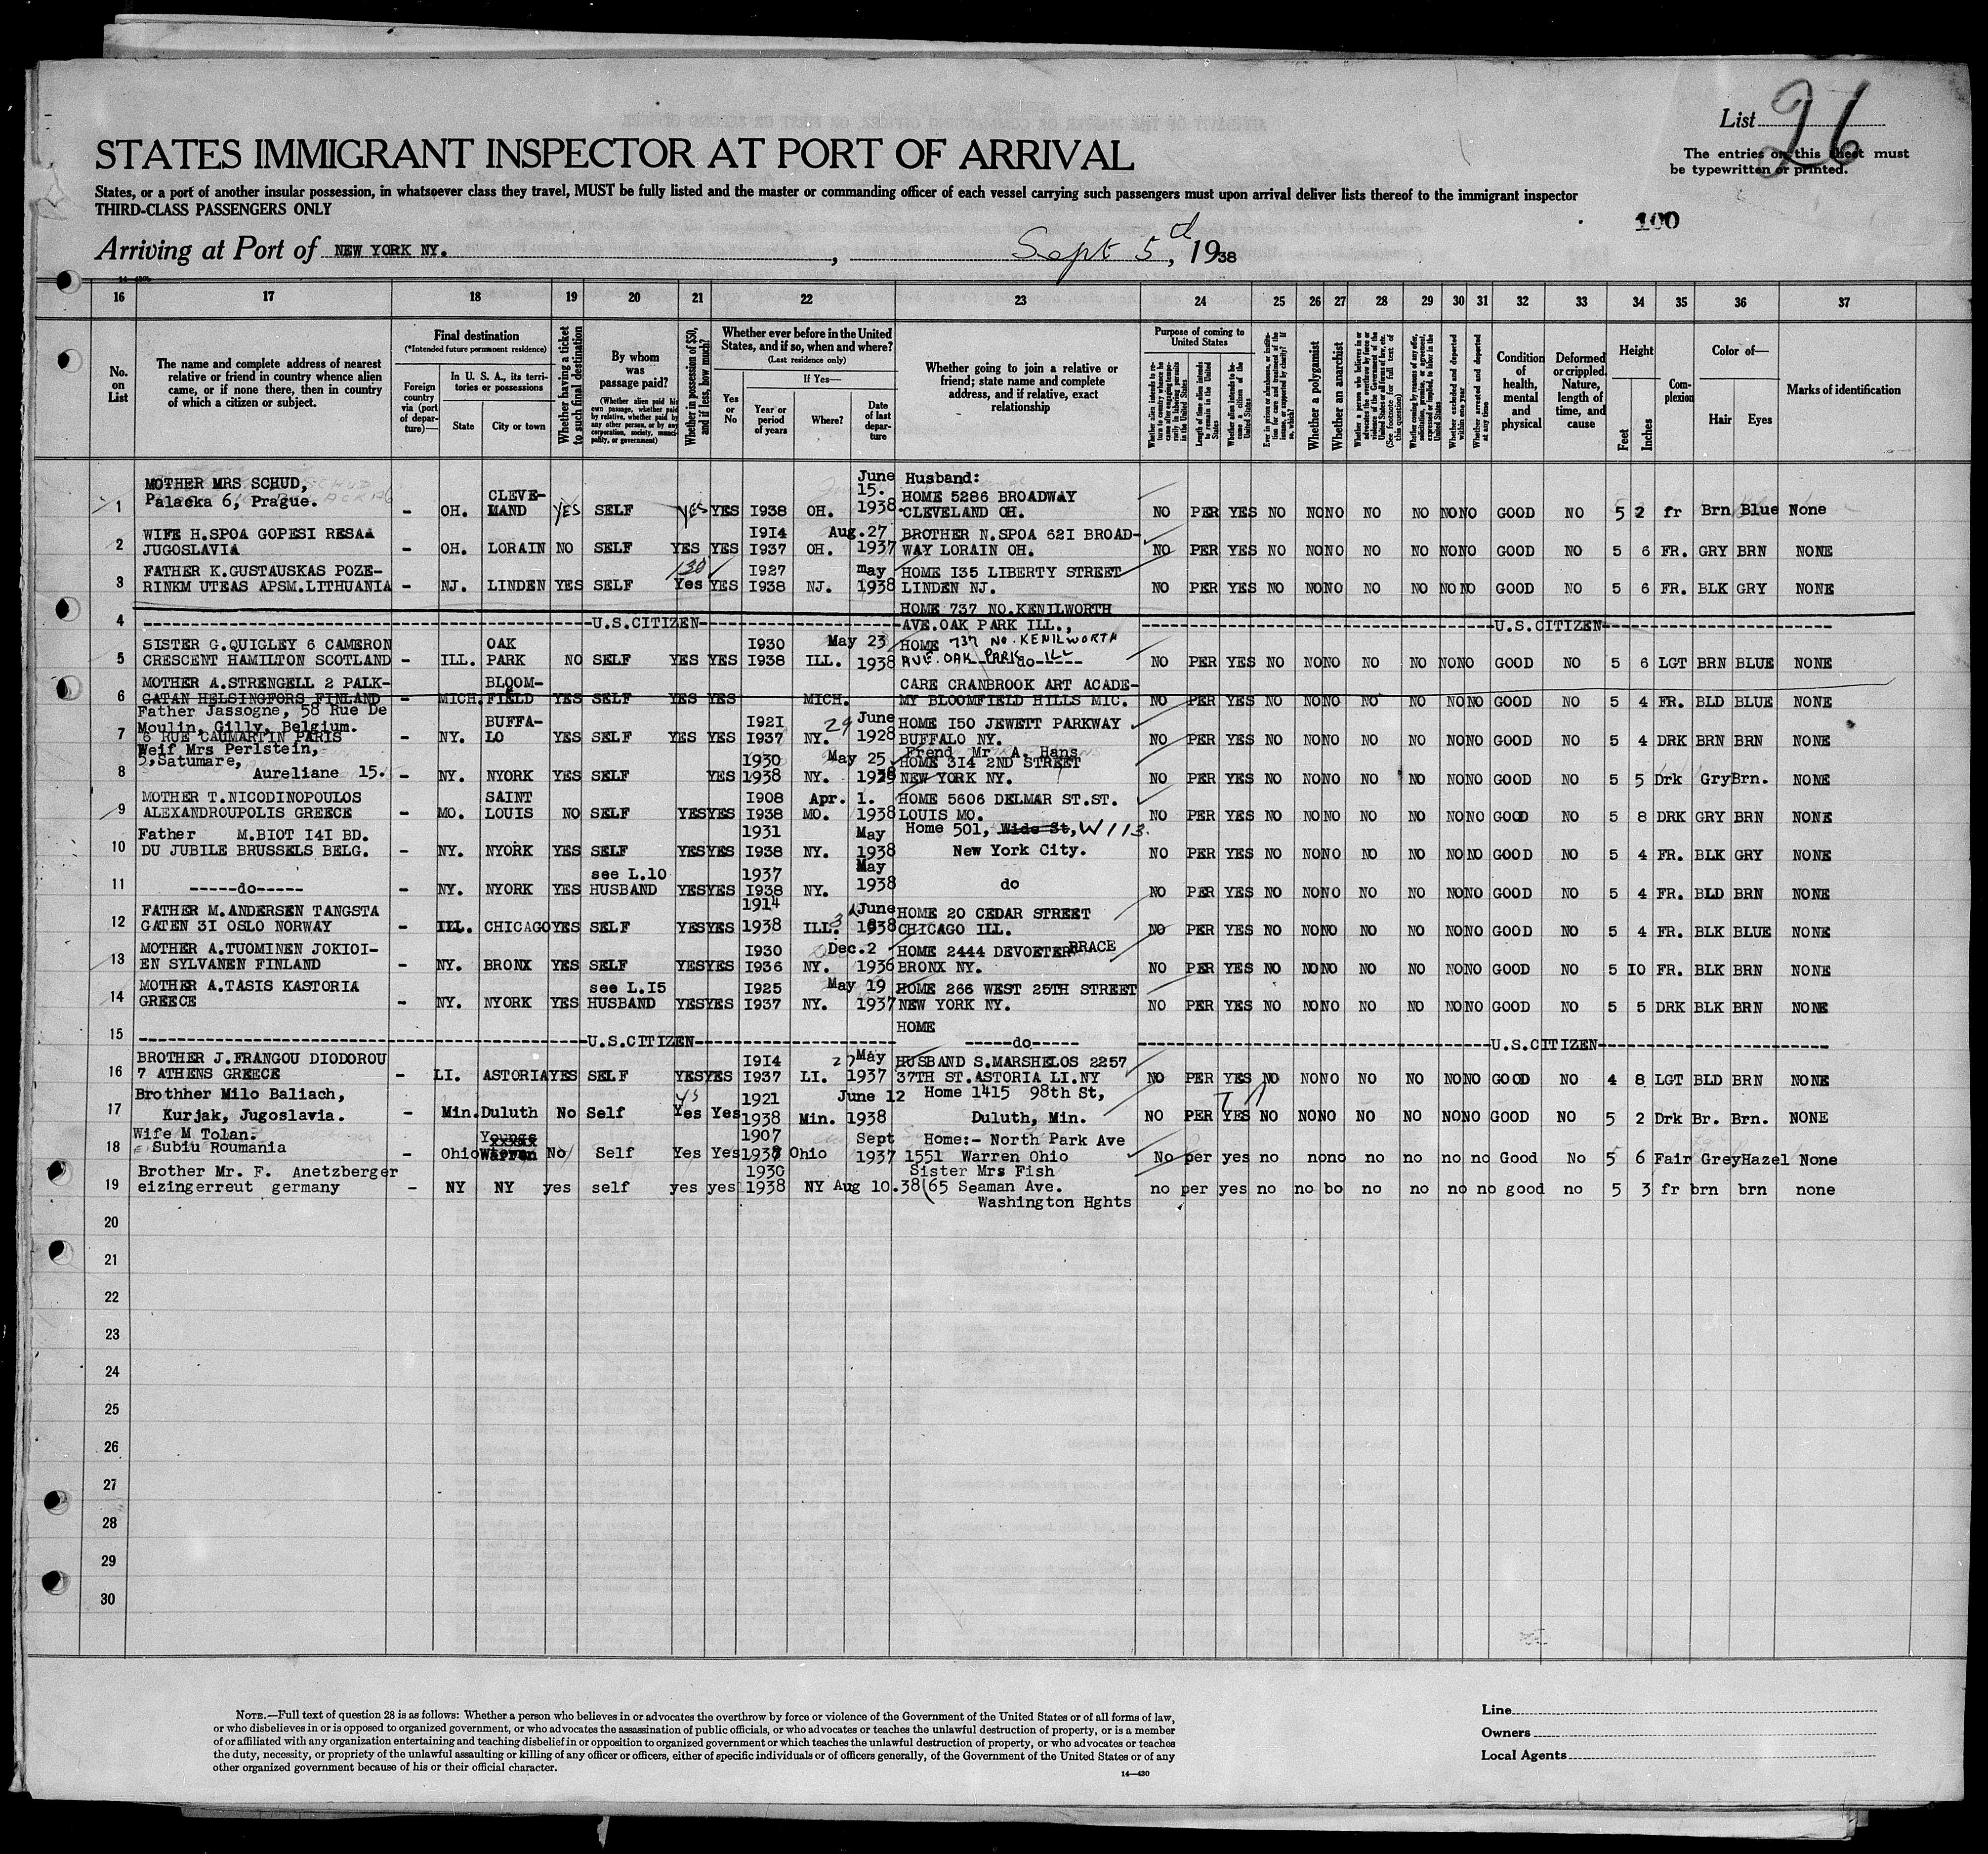 List 26
STATES IMMIGRANT INSPECTOR AT PORT OF ARRIVAL
The entries on this sheet must
be typewritten or printed.
States, or a port of another insular possession, in whatsoever class they travel, MUST be fully listed and the master or commanding officer of each vessel carrying such passengers must upon arrival deliver lists thereof to the immigrant inspector
THIRD-CLASS PASSENGERS ONLY
100
Arriving at Port of NEW YORK NY. , Sept 5th, 1938
16 17 18 19 20 21 22 23 24 25 26 27 28 29 30 31 32 33 34 35 36 37
No. on List
The name and complete address of nearest relative or friend in country whence alien came, or if none there, then in country of which a citizen or subject.
Final destination
(*Intended future permanent residence)
Foreign country via (port of departure)—
In U. S. A., its territories or possessions
State
City or town
Whether having a ticket to such final destination
By whom was passage paid?
(Whether alien paid his own passage, whether paid by relative, whether paid by any other person, or by any corporation, society, municipality, or government)
Whether in possession of $50, and if less, how much?
Whether ever before in the United States, and if so, when and where?
(Last residence only)
Yes or No
If Yes—
Year or period of years
Where?
Date of last departure
Whether going to join a relative or friend; state name and complete address, and if relative, exact relationship
Purpose of coming to United States
Whether alien intends to return to country whence he came after engaging temporarily in laboring pursuits in the United States
Length of time alien intends to remain in the United States
Whether alien intends to become a citizen of the United States
Ever in prison or almshouse, or institution for care and treatment of the insane, or supported by charity? If so, which?
Whether a polygamist
Whether an anarchist
Whether a person who believes in or advocates the overthrow by force or violence of the Government of the United States or all forms of law, etc. (See footnote for full text of this question)
Whether coming by reason of any offer, solicitation, promise, or agreement, expressed or implied, to labor in the United States
Whether excluded and deported within one year
Whether arrested and deported at any time
Condition of health, mental and physical
Deformed or crippled. Nature, length of time, and cause
Height
Feet
Inches
Complexion
Color of—
Hair
Eyes
Marks of identification
1 MOTHER MRS SCHUD, Palacka 6, Prague. - OH. CLEVE-MAND YES SELF YES YES 1938 OH. June 15. 1938 Husband: HOME 5286 BROADWAY CLEVELAND OH. NO PER YES NO NO NO NO NO NO NO GOOD NO 5 2 fr Brn Blue None
2 WIFE H.SPOA GOPESI RESAA JUGOSLAVIA - OH. LORAIN NO SELF YES YES 1914 1937 OH. Aug.27 1937 BROTHER N.SPOA 621 BROADWAY LORAIN OH. NO PER YES NO NO NO NO NO NO NO GOOD NO 5 6 FR. GRY BRN NONE
3 FATHER K.GUSTAUSKAS POZE-RINKM UTEAS APSM.LITHUANIA - NJ. LINDEN YES SELF 130 Yes YES 1927 1938 NJ. may 1938 HOME 135 LIBERTY STREET LINDEN NJ. NO PER YES NO NO NO NO NO NO NO GOOD NO 5 6 FR. BLK GRY NONE
4 U.S.CITIZEN HOME 737 NO.KENILWORTH AVE.OAK PARK ILL., U.S.CITIZEN
5 SISTER G.QUIGLEY 6 CAMERON CRESCENT HAMILTON SCOTLAND - ILL. OAK PARK NO SELF YES YES 1930 1938 ILL. May 23 1938 HOME 737 NO. KENILWORTH AVE. OAK PARK ILL -----do----- NO PER YES NO NO NO NO NO NO NO GOOD NO 5 6 LGT BRN BLUE NONE
6 MOTHER A.STRENGELL 2 PALK-GATAN HELSINGFORS FINLAND - MICH. BLOOM-FIELD YES SELF YES YES MICH. CARE CRANBROOK ART ACADE-MY BLOOMFIELD HILLS MIC. NO PER YES NO NO NO NO NO NO NO GOOD NO 5 4 FR. BLD BLUE NONE
7 Father Jassogne, 58 Rue De Moulin, Gilly, Belgium. 6 RUE CAUMARTIN PARIS NY. BUFFA-LO YES SELF YES YES 1921 1937 NY. 29 June 1928 HOME 150 JEWETT PARKWAY BUFFALO NY. NO PER YES NO NO NO NO NO NO NO GOOD NO 5 4 DRK BRN BRN NONE
8 Weif Mrs Perlstein, 5,Satumare, Aureliane 15. - NY. NYORK YES SELF YES 1930 1938 NY. May 25 1938 Frend Mr A. Hans HOME 314 2ND STREET NEW YORK NY. NO PER YES NO NO NO NO NO NO NO GOOD NO 5 5 Drk Gry Brn. NONE
9 MOTHER T.NICODINOPOULOS ALEXANDROUPOLIS GREECE - MO. SAINT LOUIS NO SELF YES YES 1908 1938 MO. Apr. 1. 1938 HOME 5606 DELMAR ST.ST. LOUIS MO. NO PER YES NO NO NO NO NO NO NO GOOD NO 5 8 DRK GRY BRN NONE
10 Father M.BIOT 141 BD. DU JUBILE BRUSSELS BELG. - NY. NYORK YES SELF YES YES 1931 1938 NY. May 1938 Home 501, Wide St, W 113. New York City. NO PER YES NO NO NO NO NO NO NO GOOD NO 5 4 FR. BLK GRY NONE
11 -----do----- - NY. NYORK YES see L.10 HUSBAND YES YES 1937 1938 NY. May 1938 do NO PER YES NO NO NO NO NO NO NO GOOD NO 5 4 FR. BLD BRN NONE
12 FATHER M.ANDERSEN TANGSTA GATEN 31 OSLO NORWAY - ILL. CHICAGO YES SELF YES YES 1914 1938 ILL. 3 June 1938 HOME 20 CEDAR STREET CHICAGO ILL. NO PER YES NO NO NO NO NO NO NO GOOD NO 5 4 FR. BLK BLUE NONE
13 MOTHER A.TUOMINEN JOKIOI-EN SYLVANEN FINLAND - NY. BRONX YES SELF YES YES 1930 1936 NY. Dec.2 1936 HOME 2444 DEVOETERRACE BRONX NY. NO PER YES NO NO NO NO NO NO NO GOOD NO 5 10 FR. BLK BRN NONE
14 MOTHER A.TASIS KASTORIA GREECE - NY. NYORK YES see L.15 HUSBAND YES YES 1925 1937 NY. May 19 1937 HOME 266 WEST 25TH STREET NEW YORK NY. NO PER YES NO NO NO NO NO NO NO GOOD NO 5 5 DRK BLK BRN NONE
15 U.S.CITIZEN HOME -----do----- U.S.CITIZEN
16 BROTHER J.FRANGOU DIODOROU 7 ATHENS GREECE - LI. ASTORIA YES SELF YES YES 1914 1937 LI. 27 May 1937 HUSBAND S.MARSHELOS 2257 37TH ST.ASTORIA LI.NY NO PER YES NO NO NO NO NO NO NO GOOD NO 4 8 LGT BLD BRN NONE
17 Brothher Milo Baliach, Kurjak, Jugoslavia. - Min. Duluth No Self Yes Yes 1921 1938 Min. June 12 1938 Home 1415 98th St, Duluth, Min. NO PER YES NO NO NO NO NO NO NO GOOD NO 5 2 Drk Br. Brn. NONE
18 Wife M Tolan. Subiu Roumania - Ohio Warren No Self Yes Yes 1907 1937 Ohio Sept 1937 Home:- North Park Ave 1551 Warren Ohio No per yes no no no no no no no Good No 5 6 Fair Grey Hazel None
19 Brother Mr. F. Anetzberger eizingerreut germany - NY NY yes self yes yes 1930 1938 NY Aug 10.38 Sister Mrs Fish (65 Seaman Ave. Washington Hghts no per yes no no bo no no no no good no 5 3 fr brn brn none
20
21
22
23
24
25
26
27
28
29
30
NOTE.—Full text of question 28 is as follows: Whether a person who believes in or advocates the overthrow by force or violence of the Government of the United States or of all forms of law,
or who disbelieves in or is opposed to organized government, or who advocates the assassination of public officials, or who advocates or teaches the unlawful destruction of property, or is a member
of or affiliated with any organization entertaining and teaching disbelief in or opposition to organized government or which teaches the unlawful destruction of property, or who advocates or teaches
the duty, necessity, or propriety of the unlawful assaulting or killing of any officer or officers, either of specific individuals or of officers generally, of the Government of the United States or of any
other organized government because of his or their official character.
14—430
Line
Owners
Local Agents